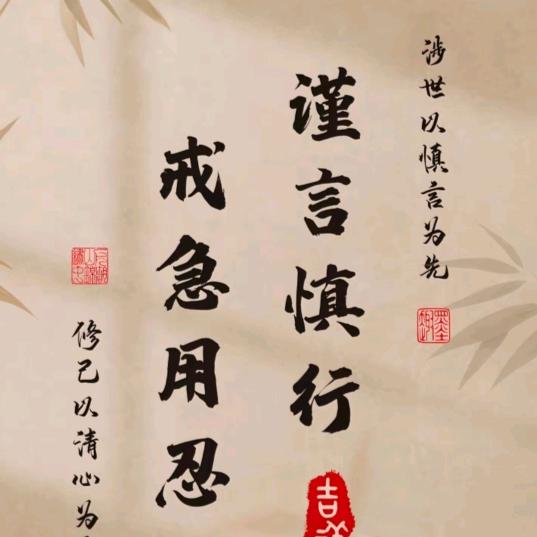 涉世以慎言为先
谨言慎行
戒急用忍
修己以清心为
吉